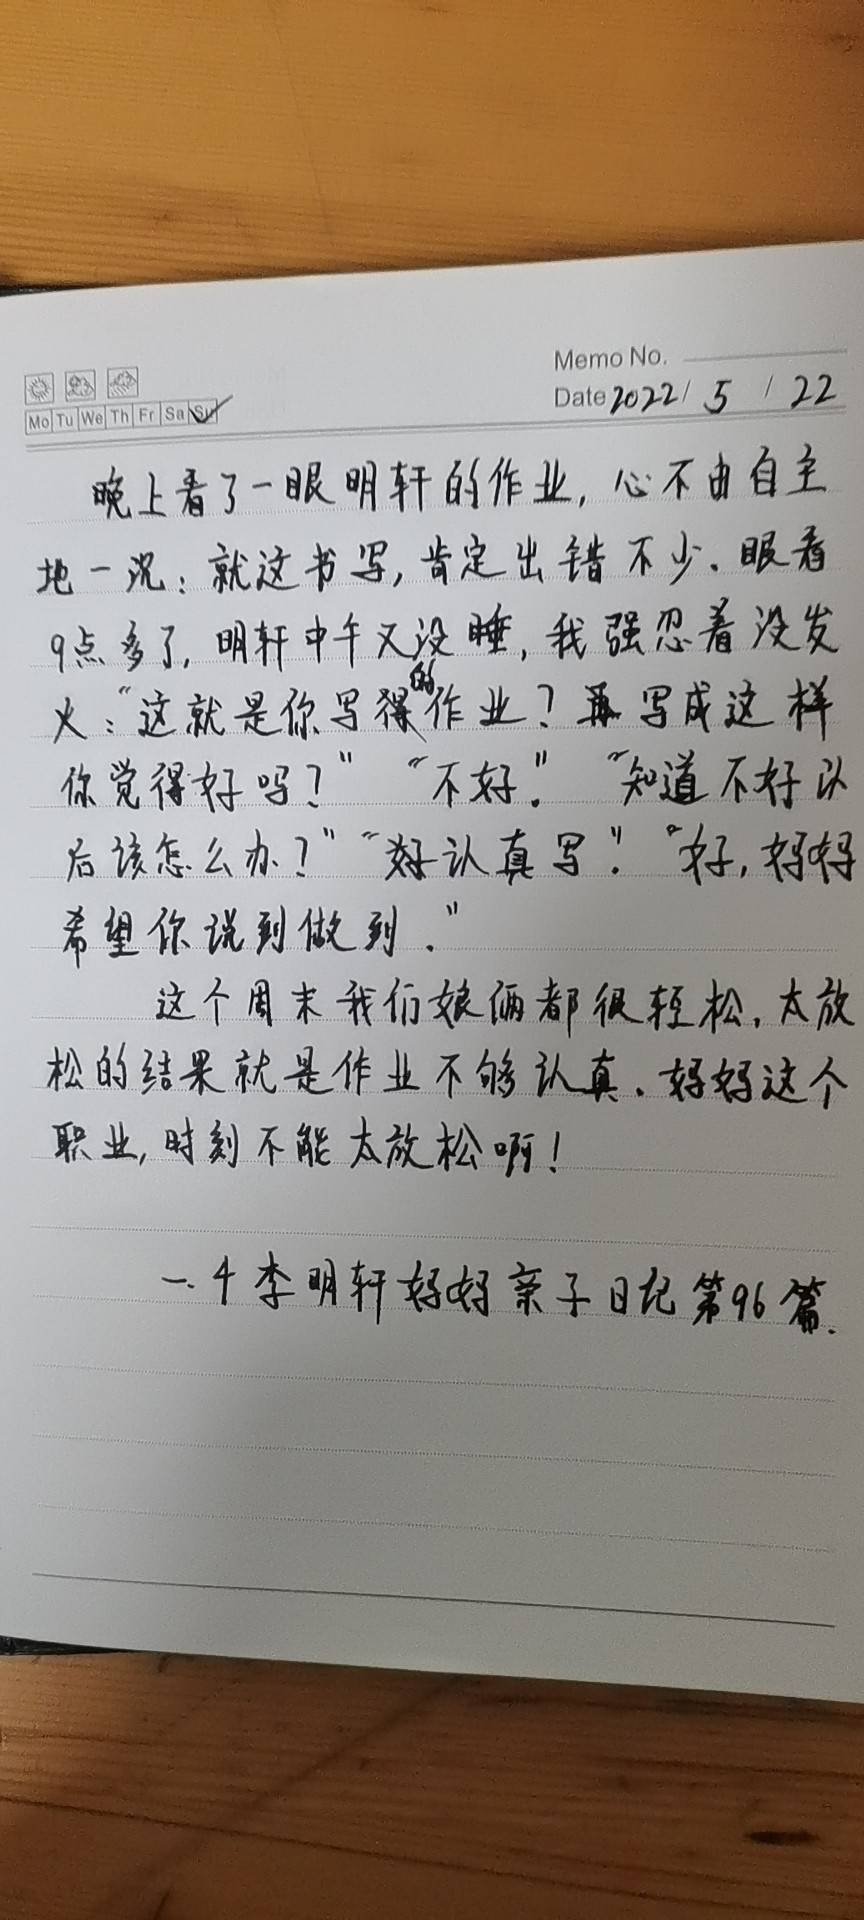 Memo No.
Mo Tu We Th Fr Sa Su
Date 2022/ 5 / 22
晚上看了一眼明轩的作业，心不由自主
地一沉：就这书写，肯定出错不少。眼看
9点多了，明轩中午又没睡，我强忍着没发
火：“这就是你写的作业？写成这样
你觉得好吗？”“不好。”“知道不好以
后该怎么办？”“好认真写。”“好，妈妈
希望你说到做到。”
这个周末我们娘俩都很轻松，太放
松的结果就是作业不够认真。妈妈这个
职业，时刻不能太放松啊！
一.4 李明轩妈妈亲子日记第96篇.